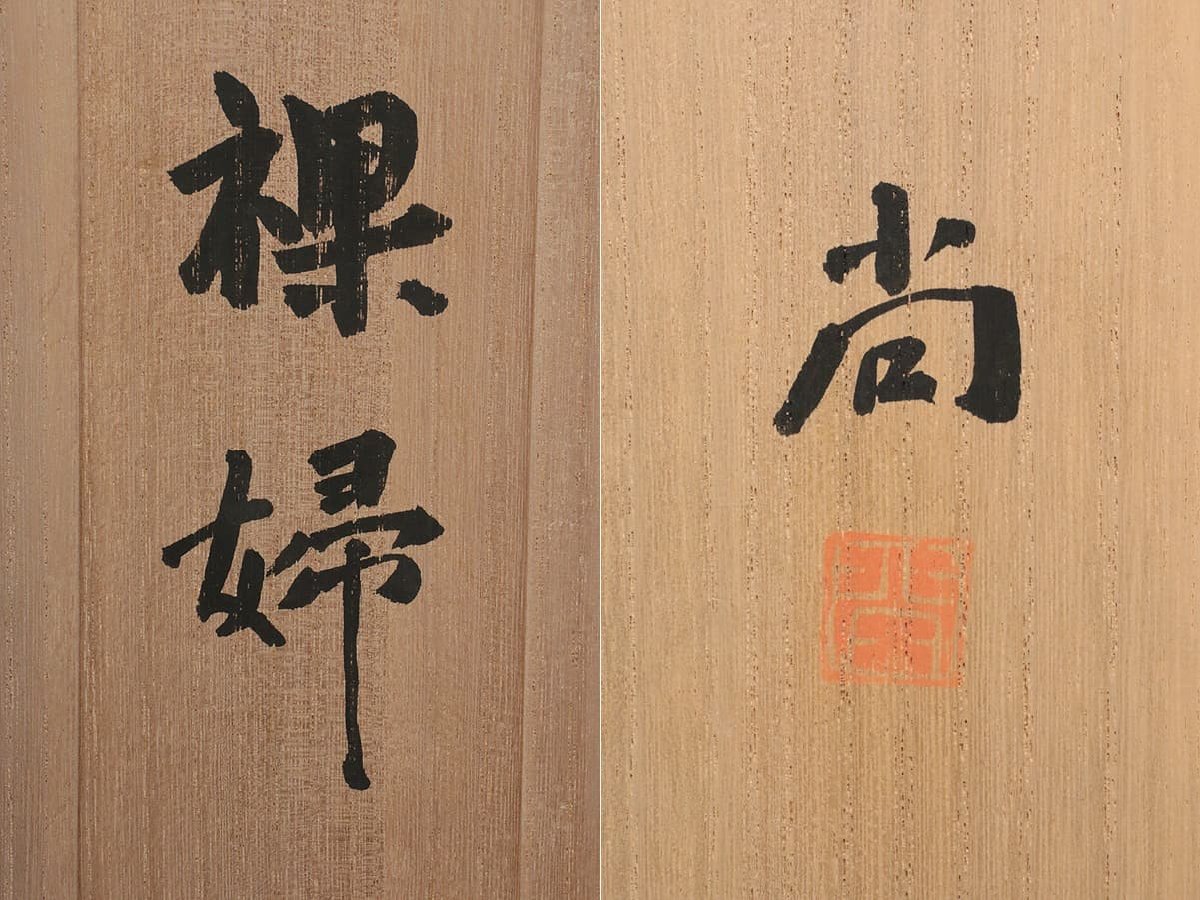 裸婦
尚